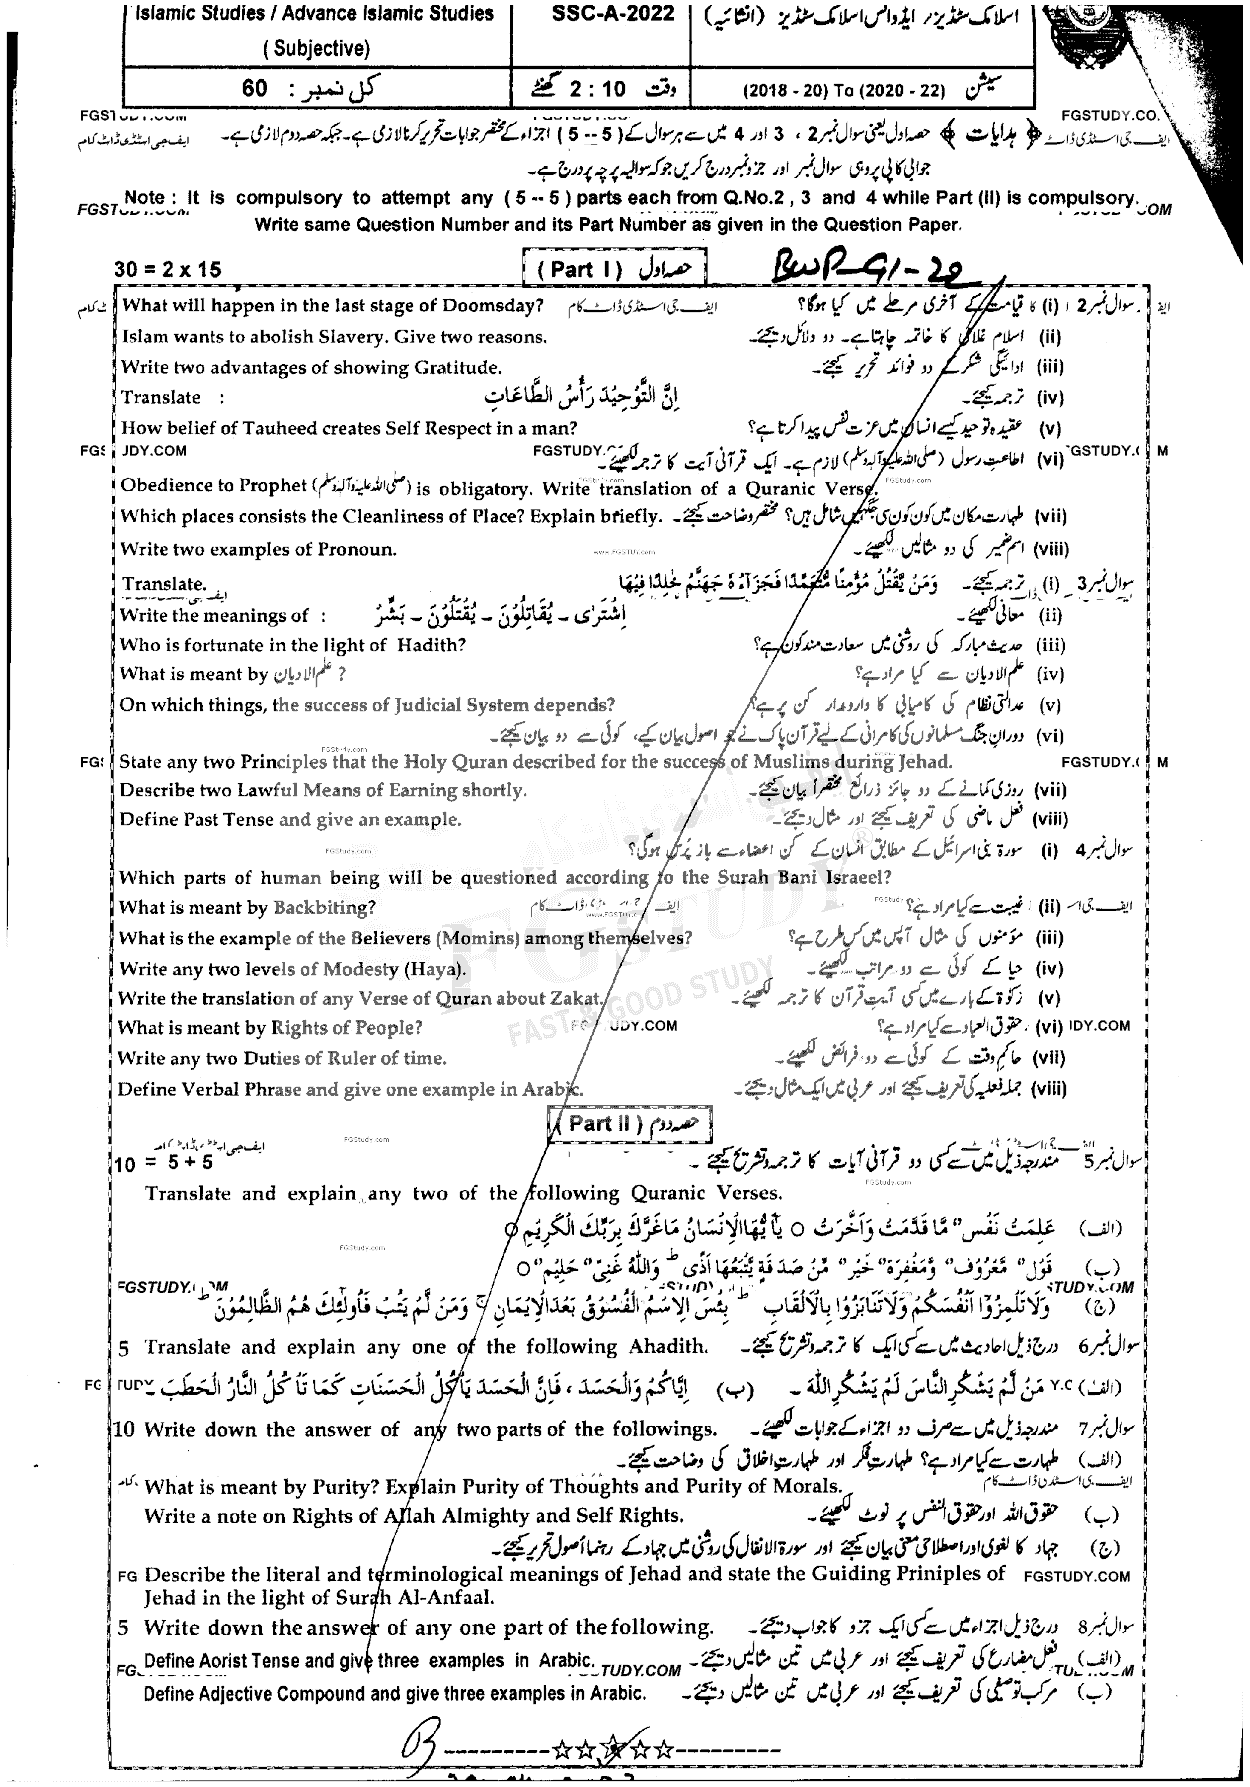 Islamic Studies / Advance Islamic Studies SSC-A-2022 اسلامک سٹڈیز / ایڈوانس اسلامک سٹڈیز (انشائیہ)
( Subjective)
کل نمبر : 60 وقت 2 : 10 گھنٹے سیشن (2018 - 20) To (2020 - 22)
FGSTUDY.CO.
﴿ ہدایات ﴾ حصہ اول یعنی سوال نمبر 2 ، 3 اور 4 میں سے ہر سوال کے ( 5 -- 5 ) اجزاء کے مختصر جوابات تحریر کرنا لازمی ہے۔ جبکہ حصہ دوم لازمی ہے۔
جوابی کاپی پر وہی سوال نمبر اور جز و نمبر درج کریں جو کہ سوالیہ پرچہ پر درج ہے۔
Note : It is compulsory to attempt any ( 5 -- 5 ) parts each from Q.No.2 , 3 and 4 while Part (II) is compulsory.
Write same Question Number and its Part Number as given in the Question Paper.
30 = 2 x 15 (Part I) حصہ اول BWP-G1-22
What will happen in the last stage of Doomsday? ایف جی اسٹڈی ڈاٹ کام سوال نمبر 2 (i) قیامت کے آخری مرحلے میں کیا ہوگا؟
Islam wants to abolish Slavery. Give two reasons. (ii) اسلام غلامی کا خاتمہ چاہتا ہے۔ دو دلائل دیجئے۔
Write two advantages of showing Gratitude. (iii) ادائیگی شکر کے دو فوائد تحریر کیجئے۔
Translate : اِنَّ التَّوْحِيْدَ رَأْسُ الطَّاعَاتِ (iv) ترجمہ کیجئے۔
How belief of Tauheed creates Self Respect in a man? (v) عقیدہ توحید کیسے انسان میں عزت نفس پیدا کرتا ہے؟
FGSTUDY.COM (vi) اطاعت رسول (صلی اللہ علیہ وآلہ وسلم) لازم ہے۔ ایک قرآنی آیت کا ترجمہ لکھیئے۔
Obedience to Prophet (صلی اللہ علیہ وآلہ وسلم) is obligatory. Write translation of a Quranic Verse. FGStudy.com
Which places consists the Cleanliness of Place? Explain briefly. (vii) طہارت مکان میں کون کون سی جگہیں شامل ہیں؟ مختصر وضاحت کیجئے۔
Write two examples of Pronoun. www.FGSTUDY.com (viii) اسم ضمیر کی دو مثالیں لکھیئے۔
Translate. وَمَنْ يَّقْتُلْ مُؤْمِنًا مُّتَعَمِّدًا فَجَزَآءُهٗ جَهَنَّمُ خٰلِدًا فِيْهَا سوال نمبر 3 (i) ترجمہ کیجئے۔
Write the meanings of : اِشْتَرٰى ۔ يُقَاتِلُوْنَ ۔ يُقْتَلُوْنَ ۔ بَشِّرْ (ii) معانی لکھیئے۔
Who is fortunate in the light of Hadith? (iii) حدیث مبارکہ کی روشنی میں سعادت مند کون ہے؟
What is meant by علم الادیان ? (iv) علم الادیان سے کیا مراد ہے؟
On which things, the success of Judicial System depends? (v) عدالتی نظام کی کامیابی کا دارومدار کن پر ہے؟
(vi) دوران جنگ مسلمانوں کی کامرانی کے لیے قرآن پاک نے جو اصول بیان کیے، کوئی سے دو بیان کیجئے۔
FGStudy.com
State any two Principles that the Holy Quran described for the success of Muslims during Jehad.
Describe two Lawful Means of Earning shortly. (vii) روزی کمانے کے دو جائز ذرائع مختصراً بیان کیجئے۔
Define Past Tense and give an example. (viii) فعل ماضی کی تعریف کیجئے اور مثال دیجئے۔
FGStudy.com سوال نمبر 4 (i) سورۃ بنی اسرائیل کے مطابق انسان کے کن اعضاء سے باز پرس ہوگی؟
Which parts of human being will be questioned according to the Surah Bani Israeel?
What is meant by Backbiting? (ii) غیبت سے کیا مراد ہے؟
What is the example of the Believers (Momins) among themselves? (iii) مؤمنوں کی مثال آپس میں کس طرح ہے؟
Write any two levels of Modesty (Haya). (iv) حیا کے کوئی سے دو مراتب لکھیئے۔
Write the translation of any Verse of Quran about Zakat. (v) زکوٰۃ کے بارے میں کسی آیت قرآن کا ترجمہ لکھیئے۔
FGSTUDY
FAST & GOOD STUDY
What is meant by Rights of People? (vi) حقوق العباد سے کیا مراد ہے؟
Write any two Duties of Ruler of time. (vii) حاکم وقت کے کوئی سے دو فرائض لکھیئے۔
Define Verbal Phrase and give one example in Arabic. (viii) جملہ فعلیہ کی تعریف کیجئے اور عربی میں ایک مثال دیجئے۔
(Part II) حصہ دوم
FGStudy.com
10 = 5 + 5 سوال نمبر 5 مندرجہ ذیل میں سے کسی دو قرآنی آیات کا ترجمہ و تشریح کیجئے۔
Translate and explain any two of the following Quranic Verses. FGStudy.com
(الف) عَلِمَتْ نَفْسٌ مَّا قَدَّمَتْ وَاَخَّرَتْ ○ يٰٓاَيُّهَا الْاِنْسَانُ مَا غَرَّكَ بِرَبِّكَ الْكَرِيْمِ ○
FGStudy.com (ب) قَوْلٌ مَّعْرُوْفٌ وَّمَغْفِرَةٌ خَيْرٌ مِّنْ صَدَقَةٍ يَّتْبَعُهَا اَذًى ط وَاللّٰهُ غَنِيٌّ حَلِيْمٌ ○
(ج) وَلَا تَلْمِزُوْٓا اَنْفُسَكُمْ وَلَا تَنَابَزُوْا بِالْاَلْقَابِ ط بِئْسَ الِاسْمُ الْفُسُوْقُ بَعْدَ الْاِيْمَانِ ج وَمَنْ لَّمْ يَتُبْ فَاُولٰٓئِكَ هُمُ الظّٰلِمُوْنَ ط
5 Translate and explain any one of the following Ahadith. سوال نمبر 6 درج ذیل احادیث میں سے کسی ایک کا ترجمہ و تشریح کیجئے۔
(الف) Y.C مَنْ لَّمْ يَشْكُرِ النَّاسَ لَمْ يَشْكُرِ اللّٰهَ ۔ (ب) اِيَّاكُمْ وَالْحَسَدَ ، فَاِنَّ الْحَسَدَ يَأْكُلُ الْحَسَنَاتِ كَمَا تَأْكُلُ النَّارُ الْحَطَبَ
10 Write down the answer of any two parts of the followings. سوال نمبر 7 مندرجہ ذیل میں سے صرف دو اجزاء کے جوابات لکھیئے۔
(الف) طہارت سے کیا مراد ہے؟ طہارتِ فکر اور طہارتِ اخلاق کی وضاحت کیجئے۔
What is meant by Purity? Explain Purity of Thoughts and Purity of Morals. ایف جی اسٹڈی ڈاٹ کام
Write a note on Rights of Allah Almighty and Self Rights. (ب) حقوق اللہ اور حقوق النفس پر نوٹ لکھیئے۔
(ج) جہاد کا لغوی اور اصطلاحی معنی بیان کیجئے اور سورۃ الانفال کی روشنی میں جہاد کے رہنما اُصول تحریر کیجئے۔
FG Describe the literal and terminological meanings of Jehad and state the Guiding Priniples of FGSTUDY.COM
Jehad in the light of Surah Al-Anfaal.
5 Write down the answer of any one part of the following. سوال نمبر 8 درج ذیل اجزاء میں سے کسی ایک جزو کا جواب دیجئے۔
Define Aorist Tense and give three examples in Arabic. (الف) فعل مضارع کی تعریف کیجئے اور عربی میں تین مثالیں دیجئے۔
Define Adjective Compound and give three examples in Arabic. (ب) مرکب توصیفی کی تعریف کیجئے اور عربی میں تین مثالیں دیجئے۔